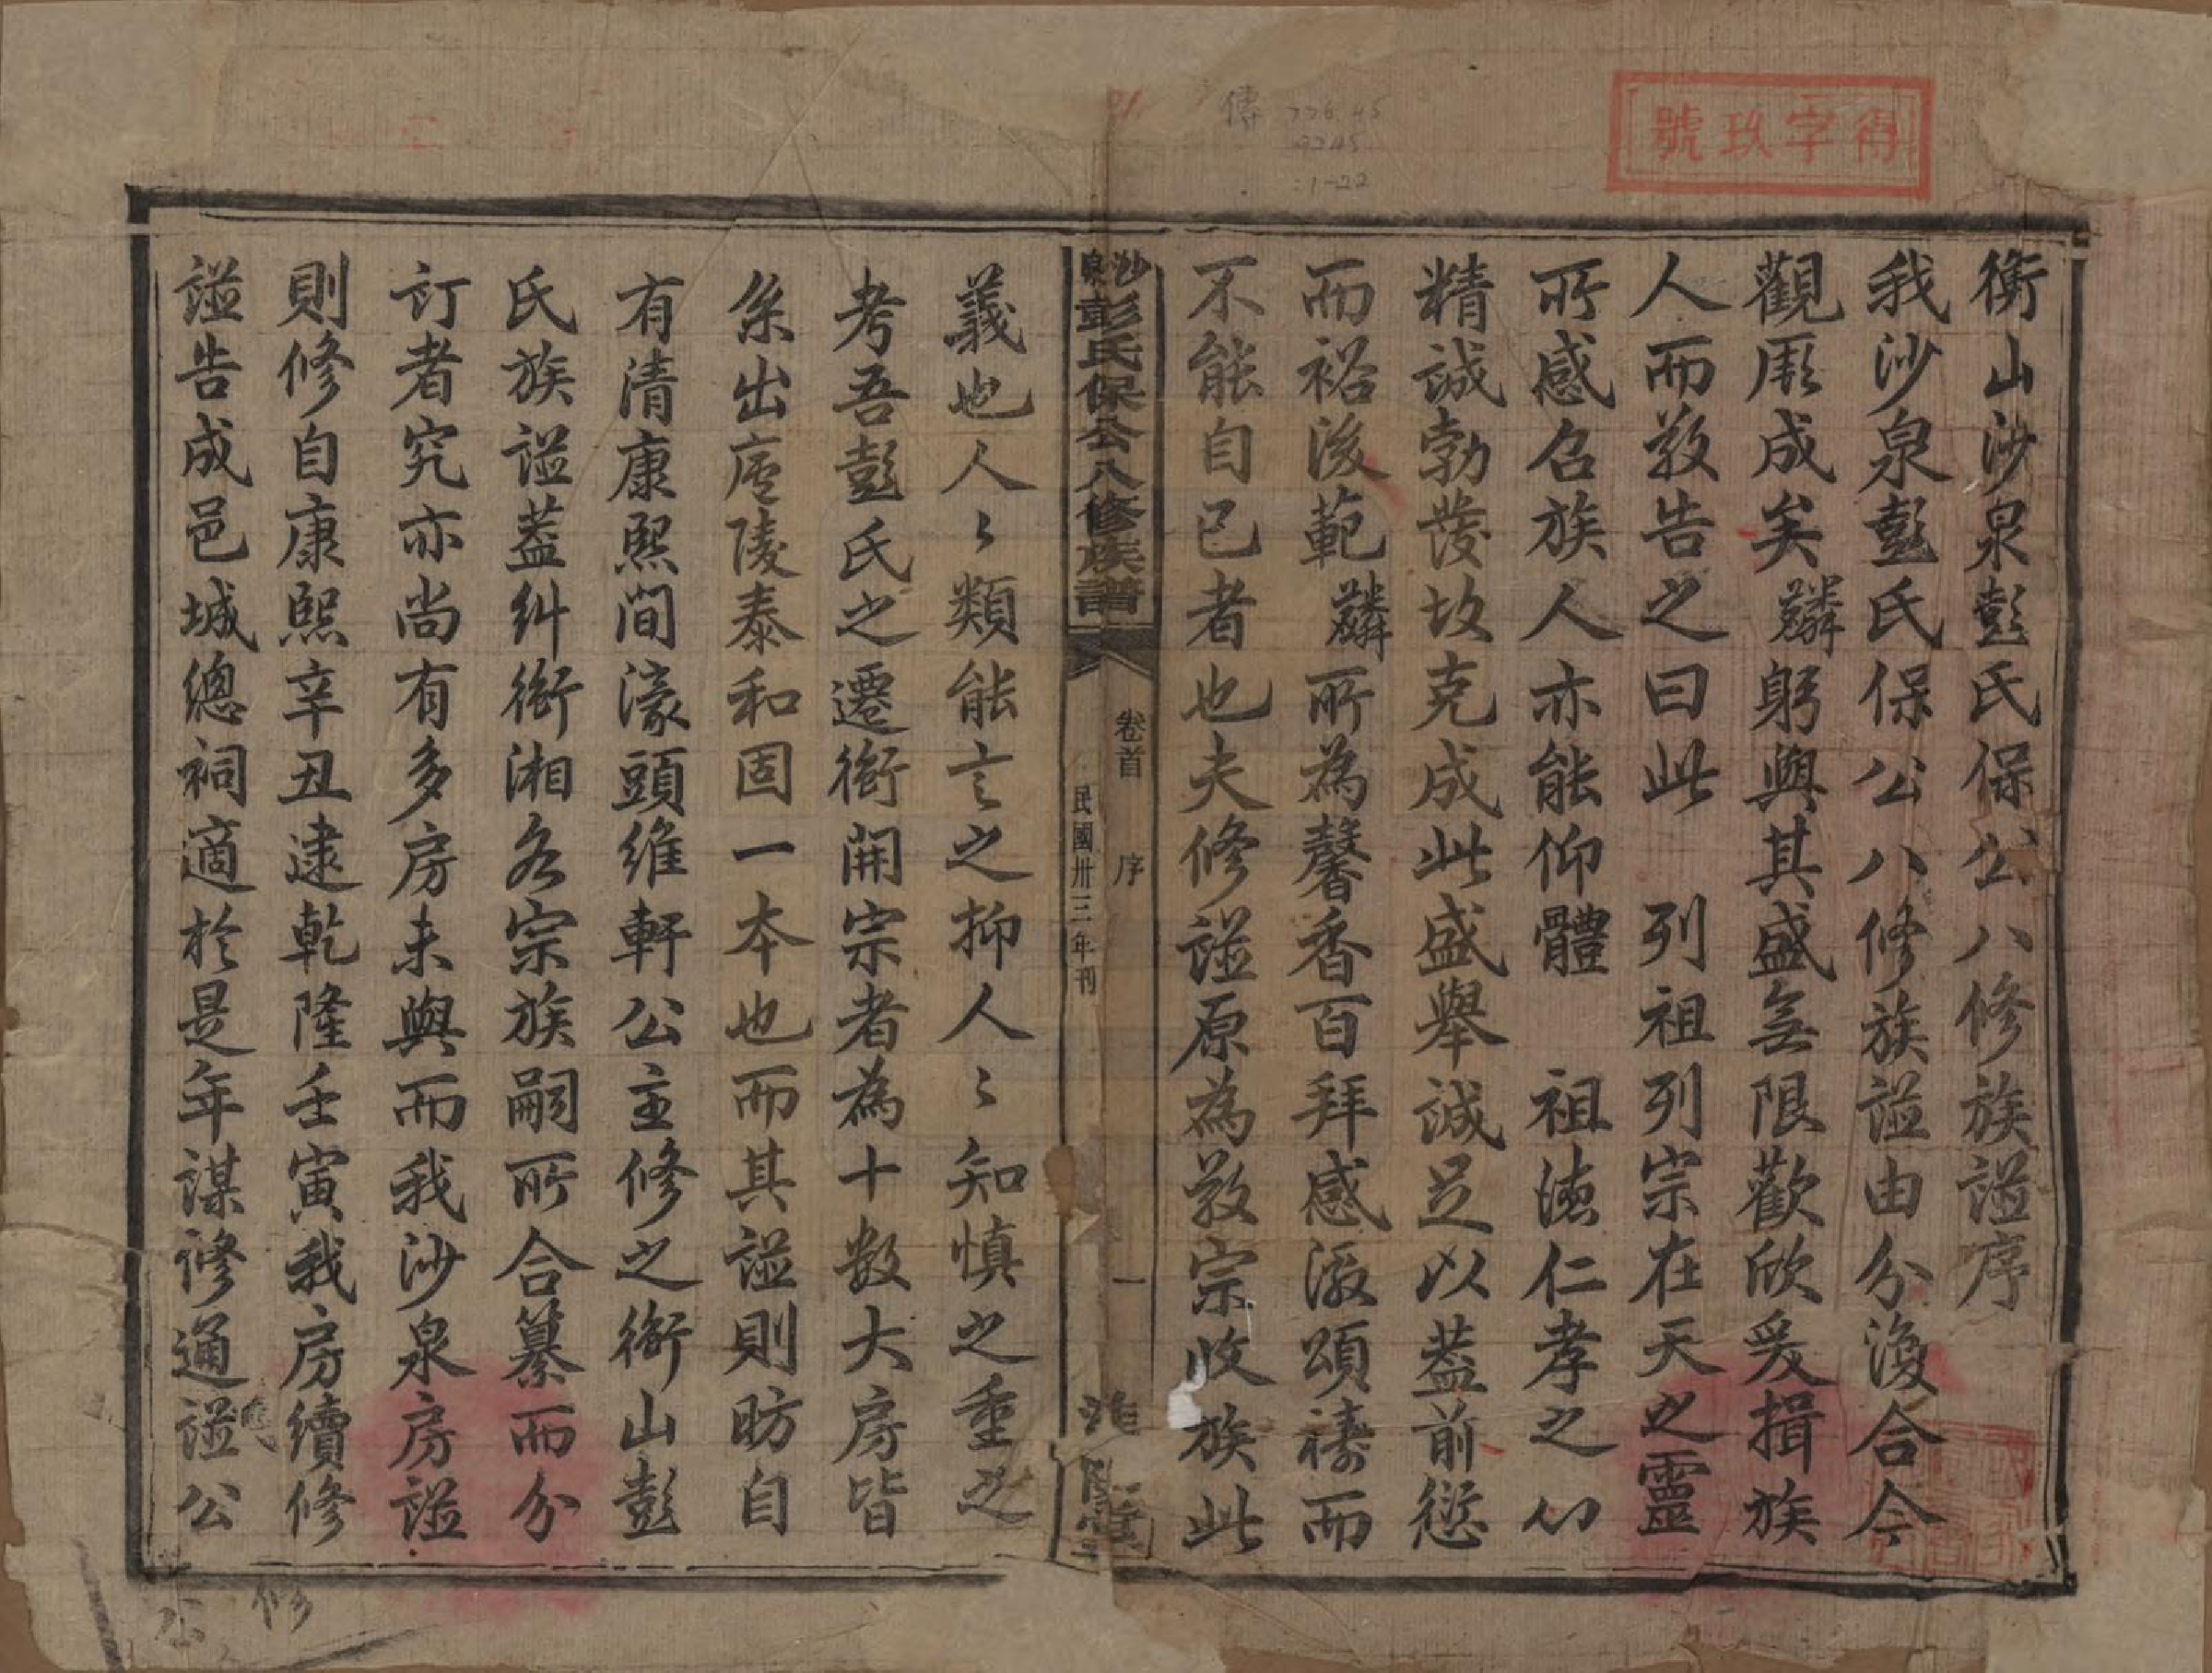 得字玖號
傳 776.45
9245
:1-22
衡山沙泉彭氏保公八修族谥序
我沙泉彭氏保公八修族谥由分渙合今
觀厥成矣麟躬與其盛無限歡欣爰揖族
人而敎告之曰此　列祖列宗在天之靈
所感召族人亦能仰體　祖德仁孝之心
精誠勃發故克成此盛舉誠足以蓋前愆
而裕後範麟所為馨香百拜感激頌禱而
不能自已者也夫修谥原為敎宗收族此
沙泉彭氏保公八修族譜
卷首　序　一
民國卅三年刊
淮陽堂
義也人〻類能言之抑人〻知慎之重之
考吾彭氏之遷衡開宗者為十數大房皆
系出廬陵泰和固一本也而其谥則昉自
有清康熙間濠頭維軒公主修之衡山彭
氏族谥蓋糾衡湘各宗族嗣所合纂而分
訂者究亦尚有多房未與而我沙泉房谥
則修自康熙辛丑逮乾隆壬寅我房續修
谥告成邑城總祠適於是年謀修通谥公
公
修